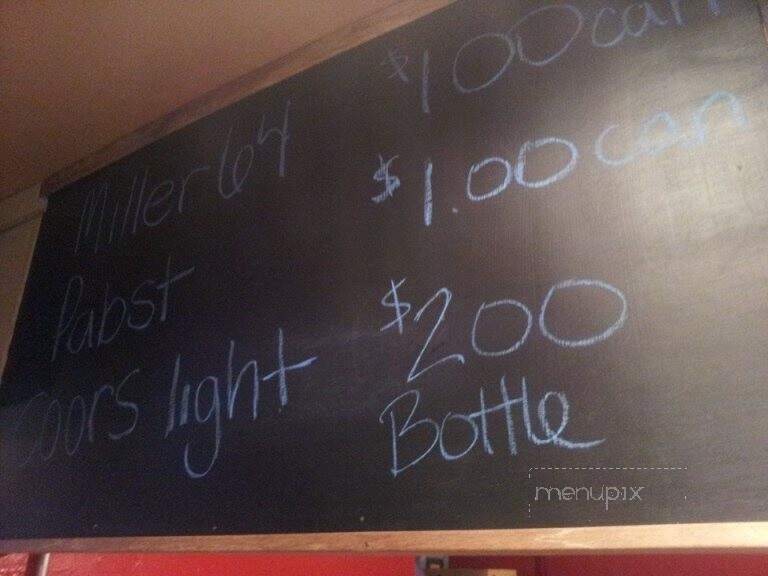 Miller 64 $100 can
Pabst $1.00 can
Coors light $200
Bottle
menupix